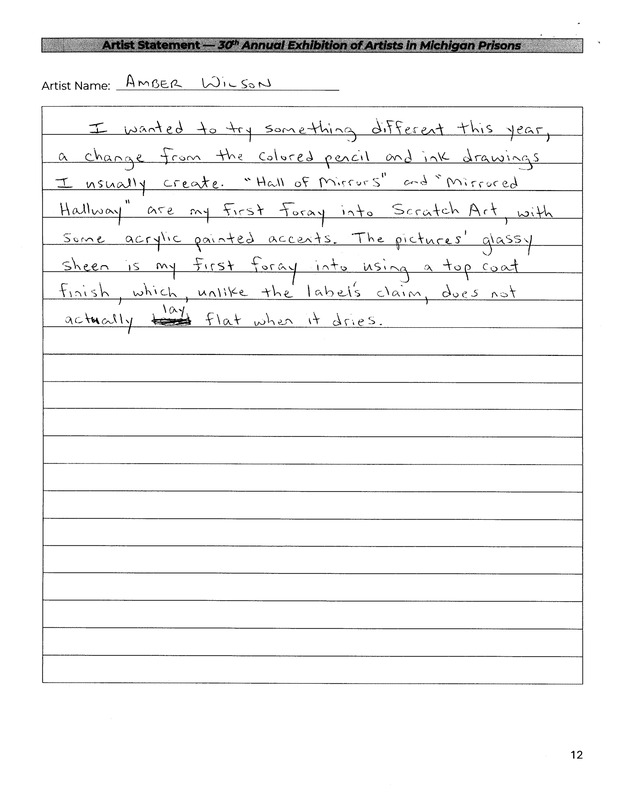 Artist Statement — 30th Annual Exhibition of Artists in Michigan Prisons
Artist Name: AMBER WILSON
I wanted to try something different this year,
a change from the colored pencil and ink drawings
I usually create. "Hall of Mirrors" and "Mirrored
Hallway" are my first foray into Scratch Art, with
some acrylic painted accents. The pictures' glassy
sheen is my first foray into using a top coat
finish, which, unlike the label's claim, does not
actually lay flat when it dries.
12